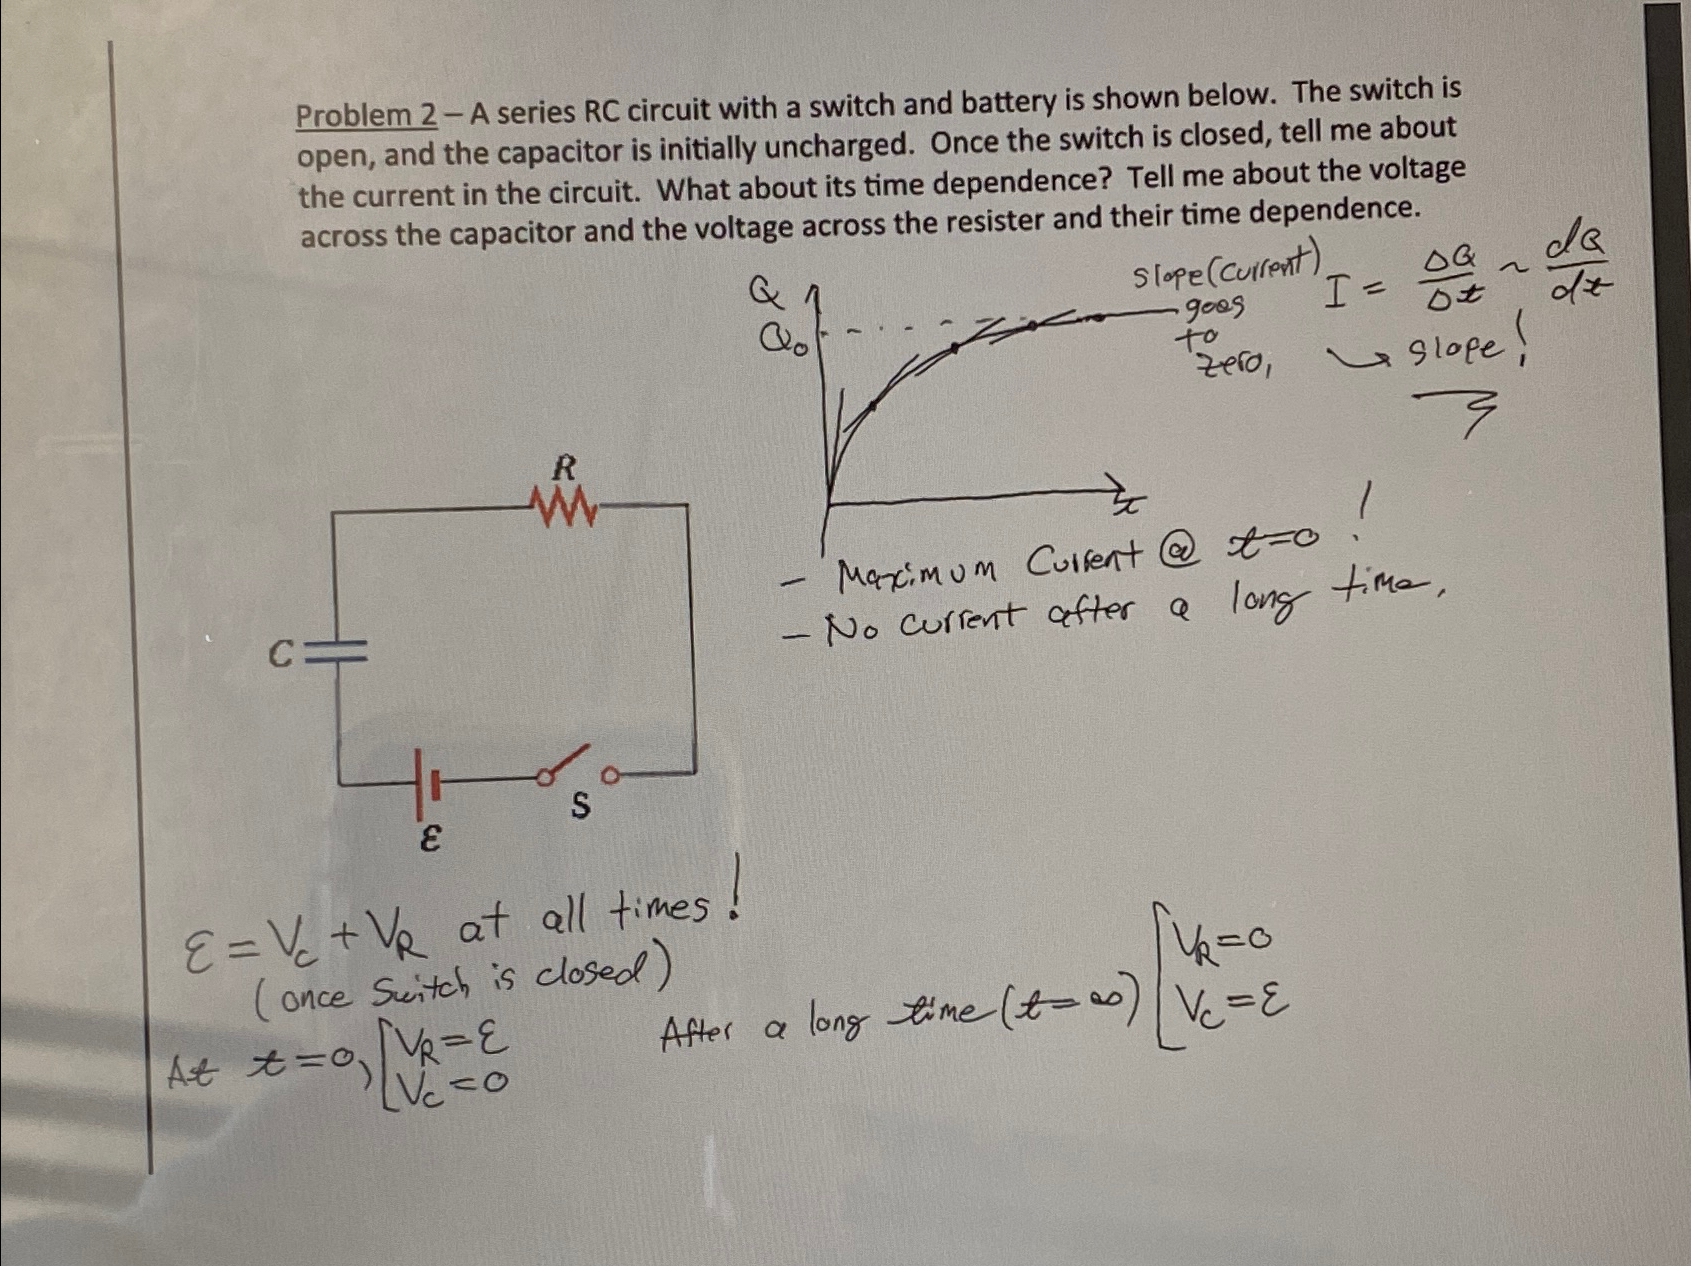 Problem 2 – A series RC circuit with a switch and battery is shown below. The switch is
open, and the capacitor is initially uncharged. Once the switch is closed, tell me about
the current in the circuit. What about its time dependence? Tell me about the voltage
across the capacitor and the voltage across the resister and their time dependence.
Q
Q₀
slope (current)
goes
to
zero,
I = ΔQ/Δt ~ dQ/dt
↳ slope!
t
- Maximum Current @ t=0 !
- No current after a long time,
R
C
ε
S
ε = Vc + VR at all times!
(once switch is closed)
At t=0, [VR = ε
Vc = 0
After a long time (t=∞) [VR = 0
Vc = ε